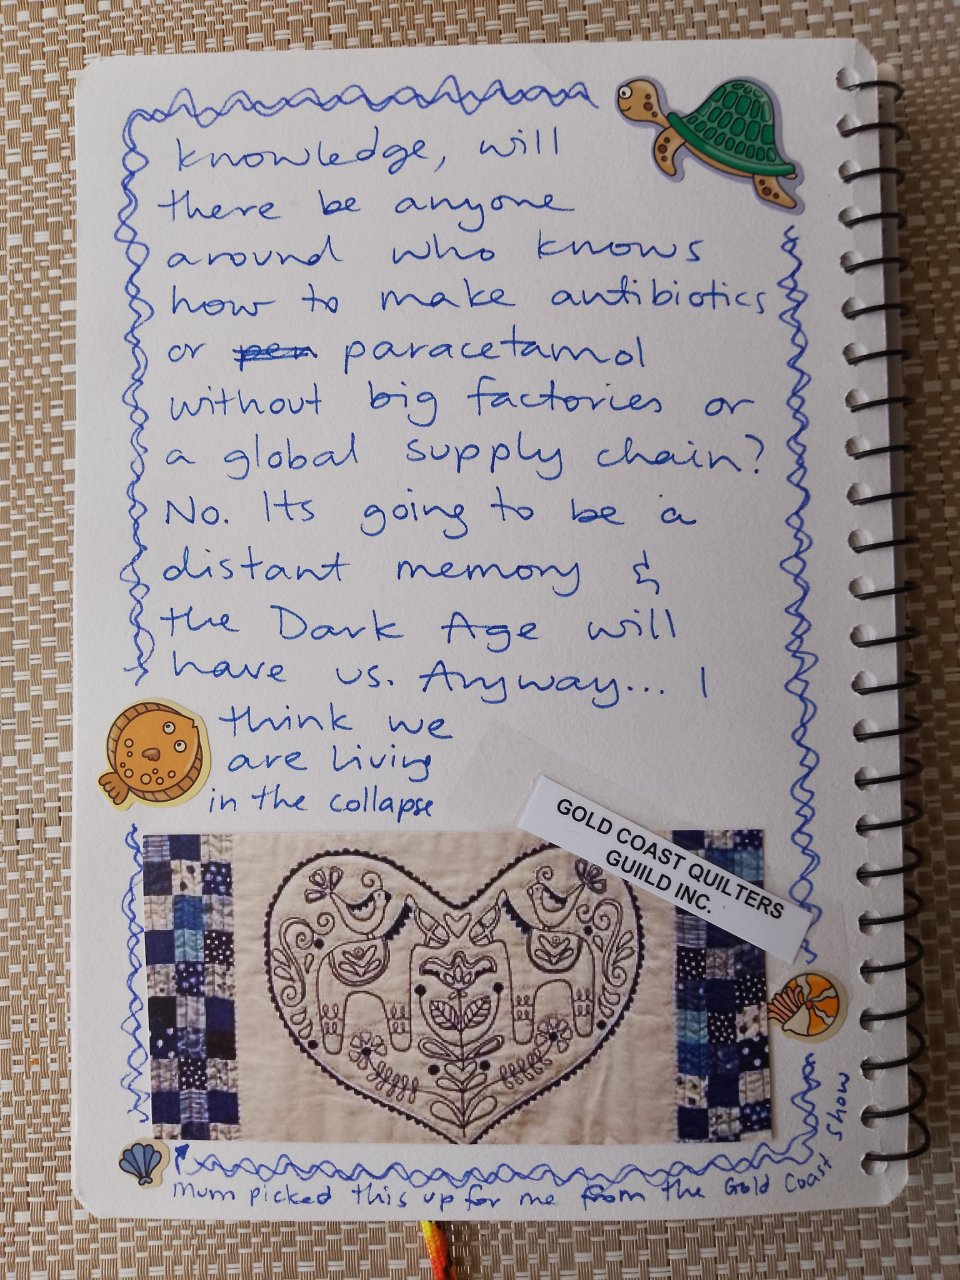 knowledge, will
there be anyone
around who knows
how to make antibiotics
or pen paracetamol
without big factories or
a global supply chain?
No. Its going to be a
distant memory &
the Dark Age will
have us. Anyway... I
think we
are living
in the collapse
GOLD COAST QUILTERS
GUILD INC.
Mum picked this up for me from the Gold Coast show